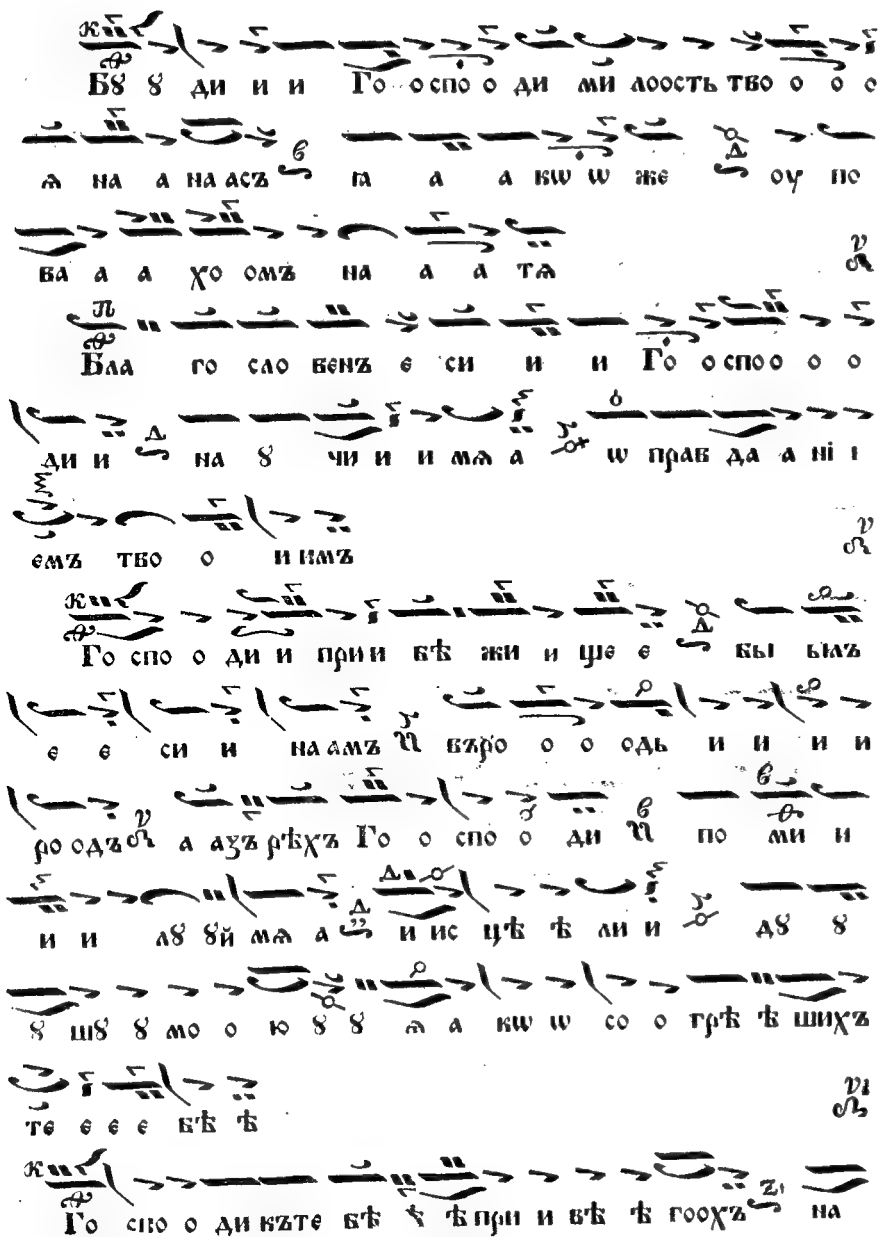 Бꙋ ꙋ ди и и Го о спо о ди ми лоость тво о о о
ѧ на а на асъ ꙗ а а кѡ ѡ же оу по
ва а а хо омъ на а а тѧ
Бла го сло венъ е си и и Го о спо о о о
ди и на ꙋ чи и и мѧ а ѡ прав да а ні і
емъ тво о и имъ
Го спо о ди и при и бѣ жи и ще е бы ылъ
е е си и на амъ въро о о о одь и и и и
ро одъ а азъ рѣхъ Го о спо о ди по ми и
и и лꙋ ꙋй мѧ а и ис цѣ ѣ ли и дꙋ ꙋ
ꙋ шꙋ ꙋ мо о ю ꙋ ꙋ ѧ а кѡ ѡ со о грѣ ѣ шихъ
те е е е бѣ ѣ
Го спо о ди къ те бѣ ѣ ѣ при и бѣ ѣ гоохъ на